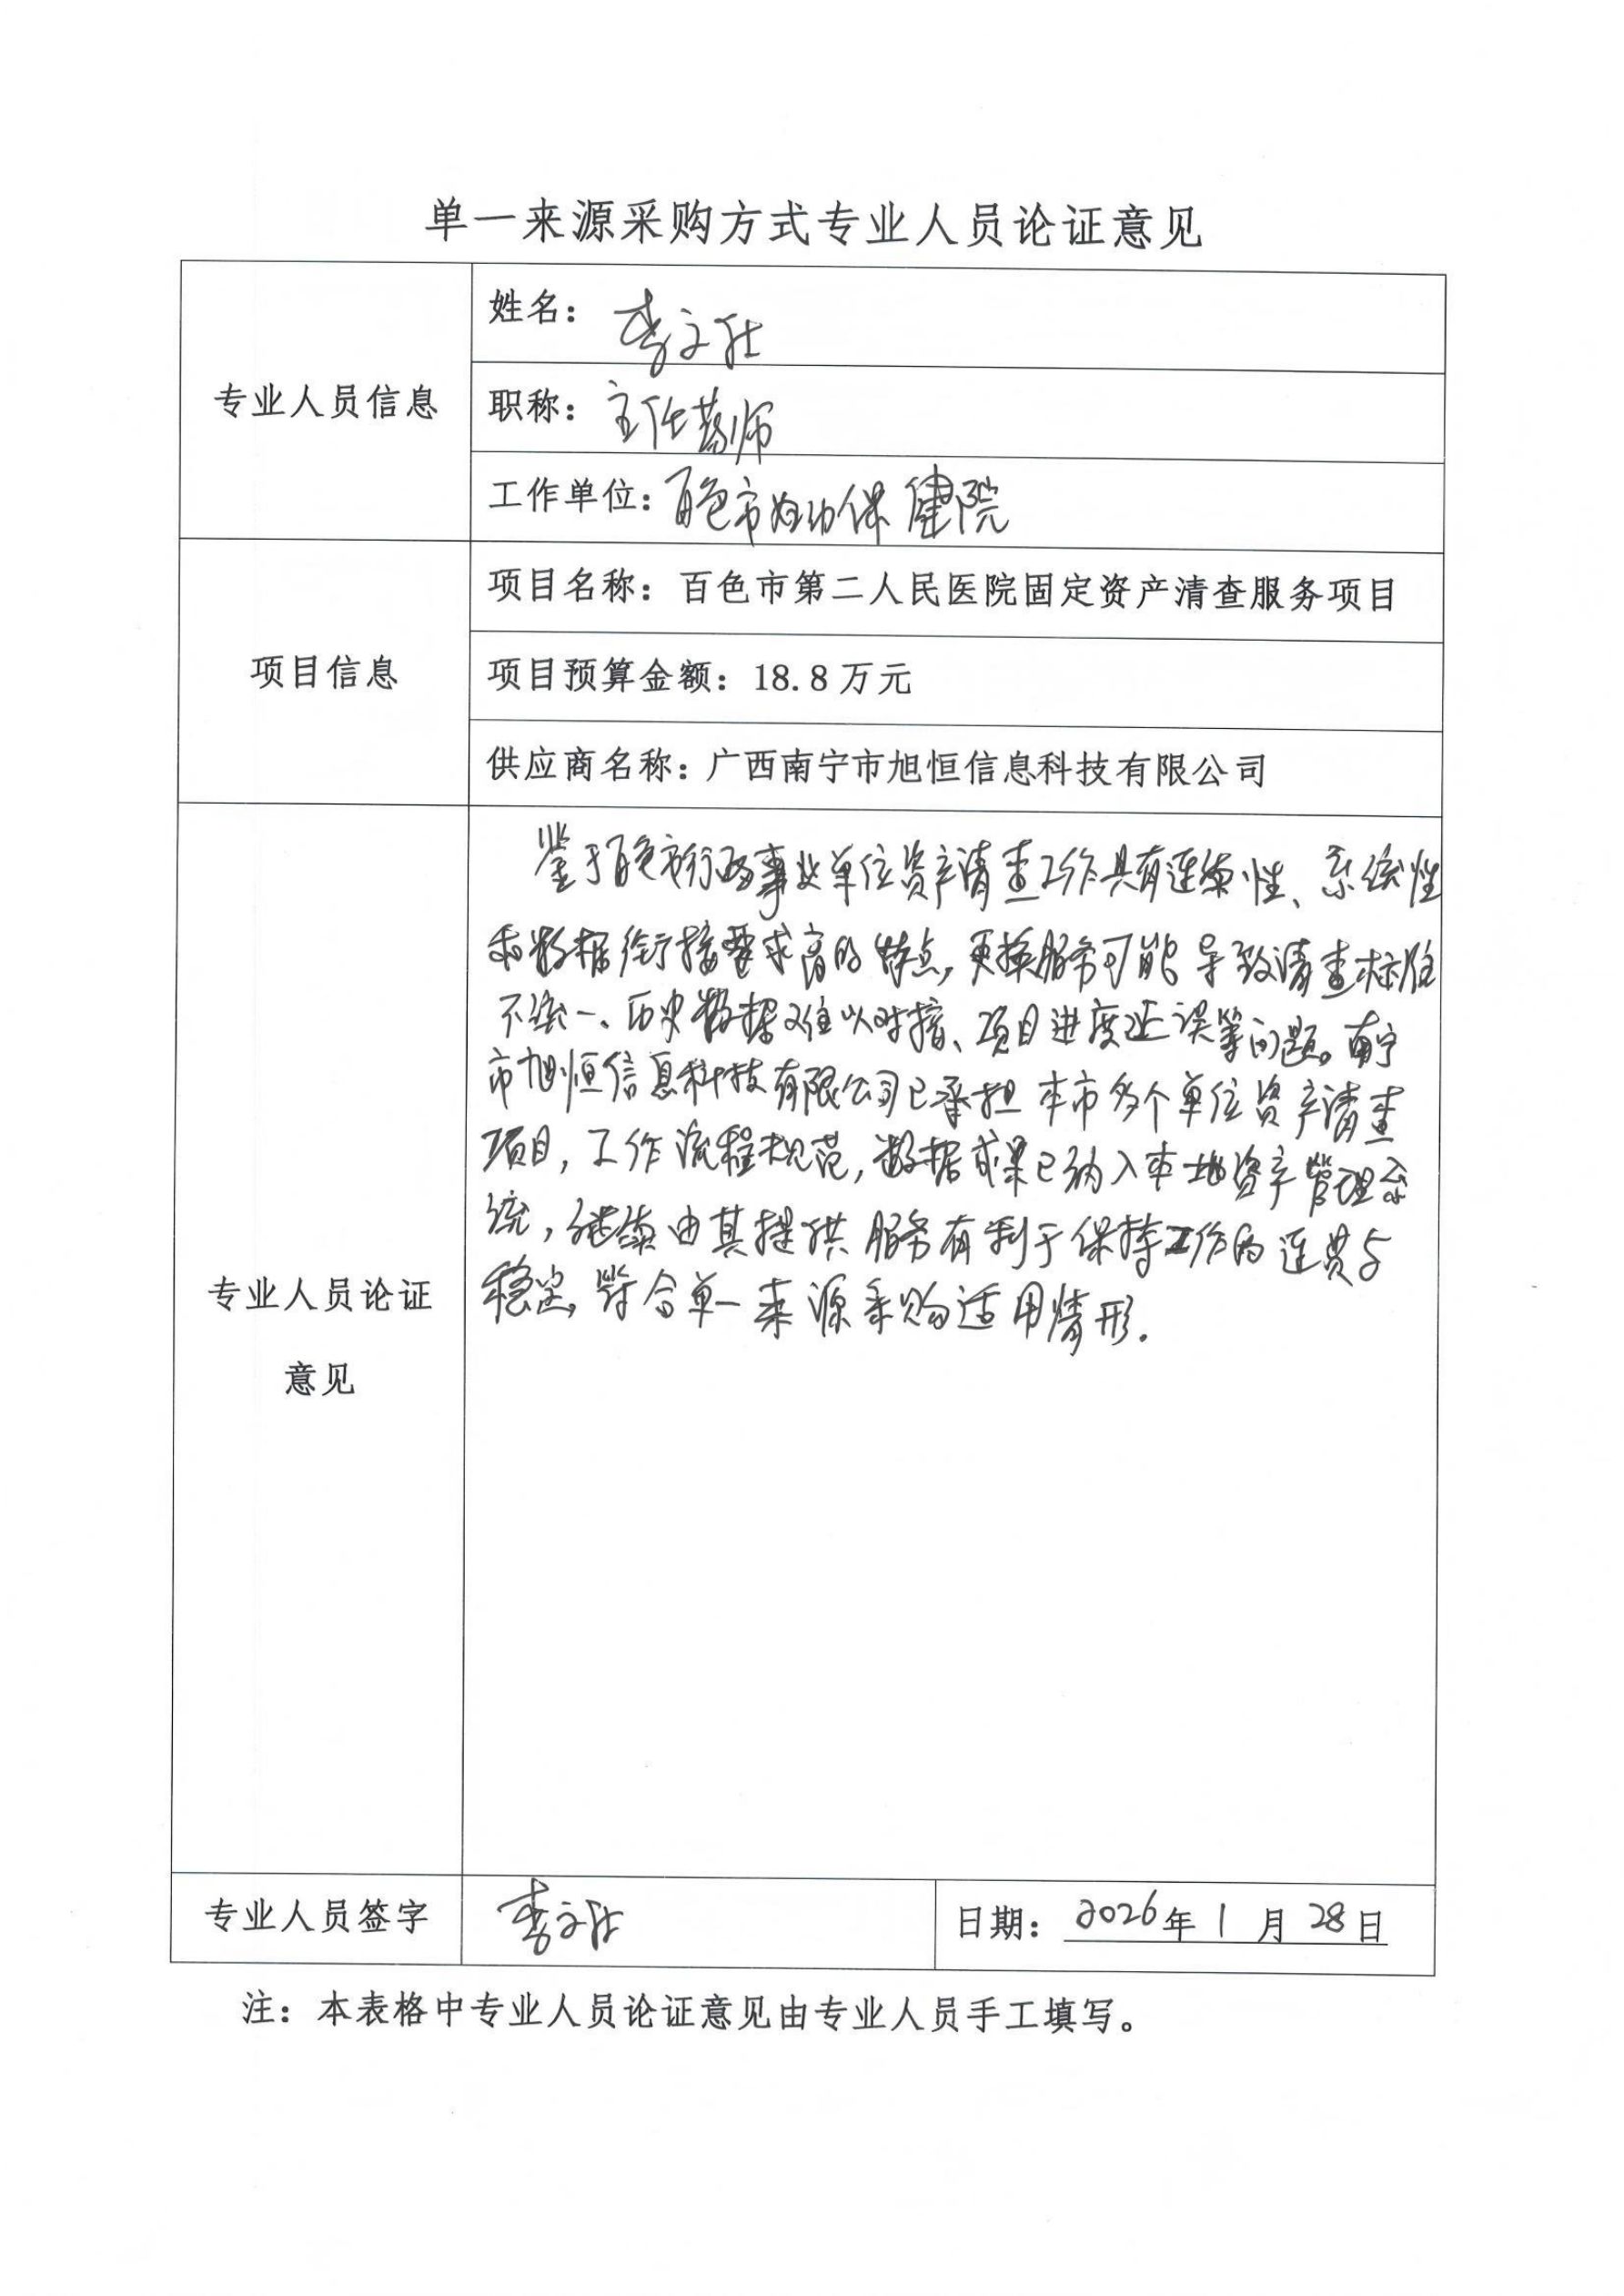 单一来源采购方式专业人员论证意见
专业人员信息
姓名：李文
职称：主任药师
工作单位：百色市妇幼保健院
项目信息
项目名称：百色市第二人民医院固定资产清查服务项目
项目预算金额：18.8万元
供应商名称：广西南宁市旭恒信息科技有限公司
专业人员论证
意见
鉴于百色市行政事业单位资产清查工作具有连续性、系统性
和数据衔接要求高的特点，更换服务可能导致清查标准
不统一、历史数据难以对接、项目进度延误等问题。南宁
市旭恒信息科技有限公司已承担本市多个单位资产清查
项目，工作流程规范，数据成果已纳入本地资产管理系
统，继续由其提供服务有利于保持工作的连贯与
稳定，符合单一来源采购适用情形.
专业人员签字
李文
日期：2026年1月28日
注：本表格中专业人员论证意见由专业人员手工填写。